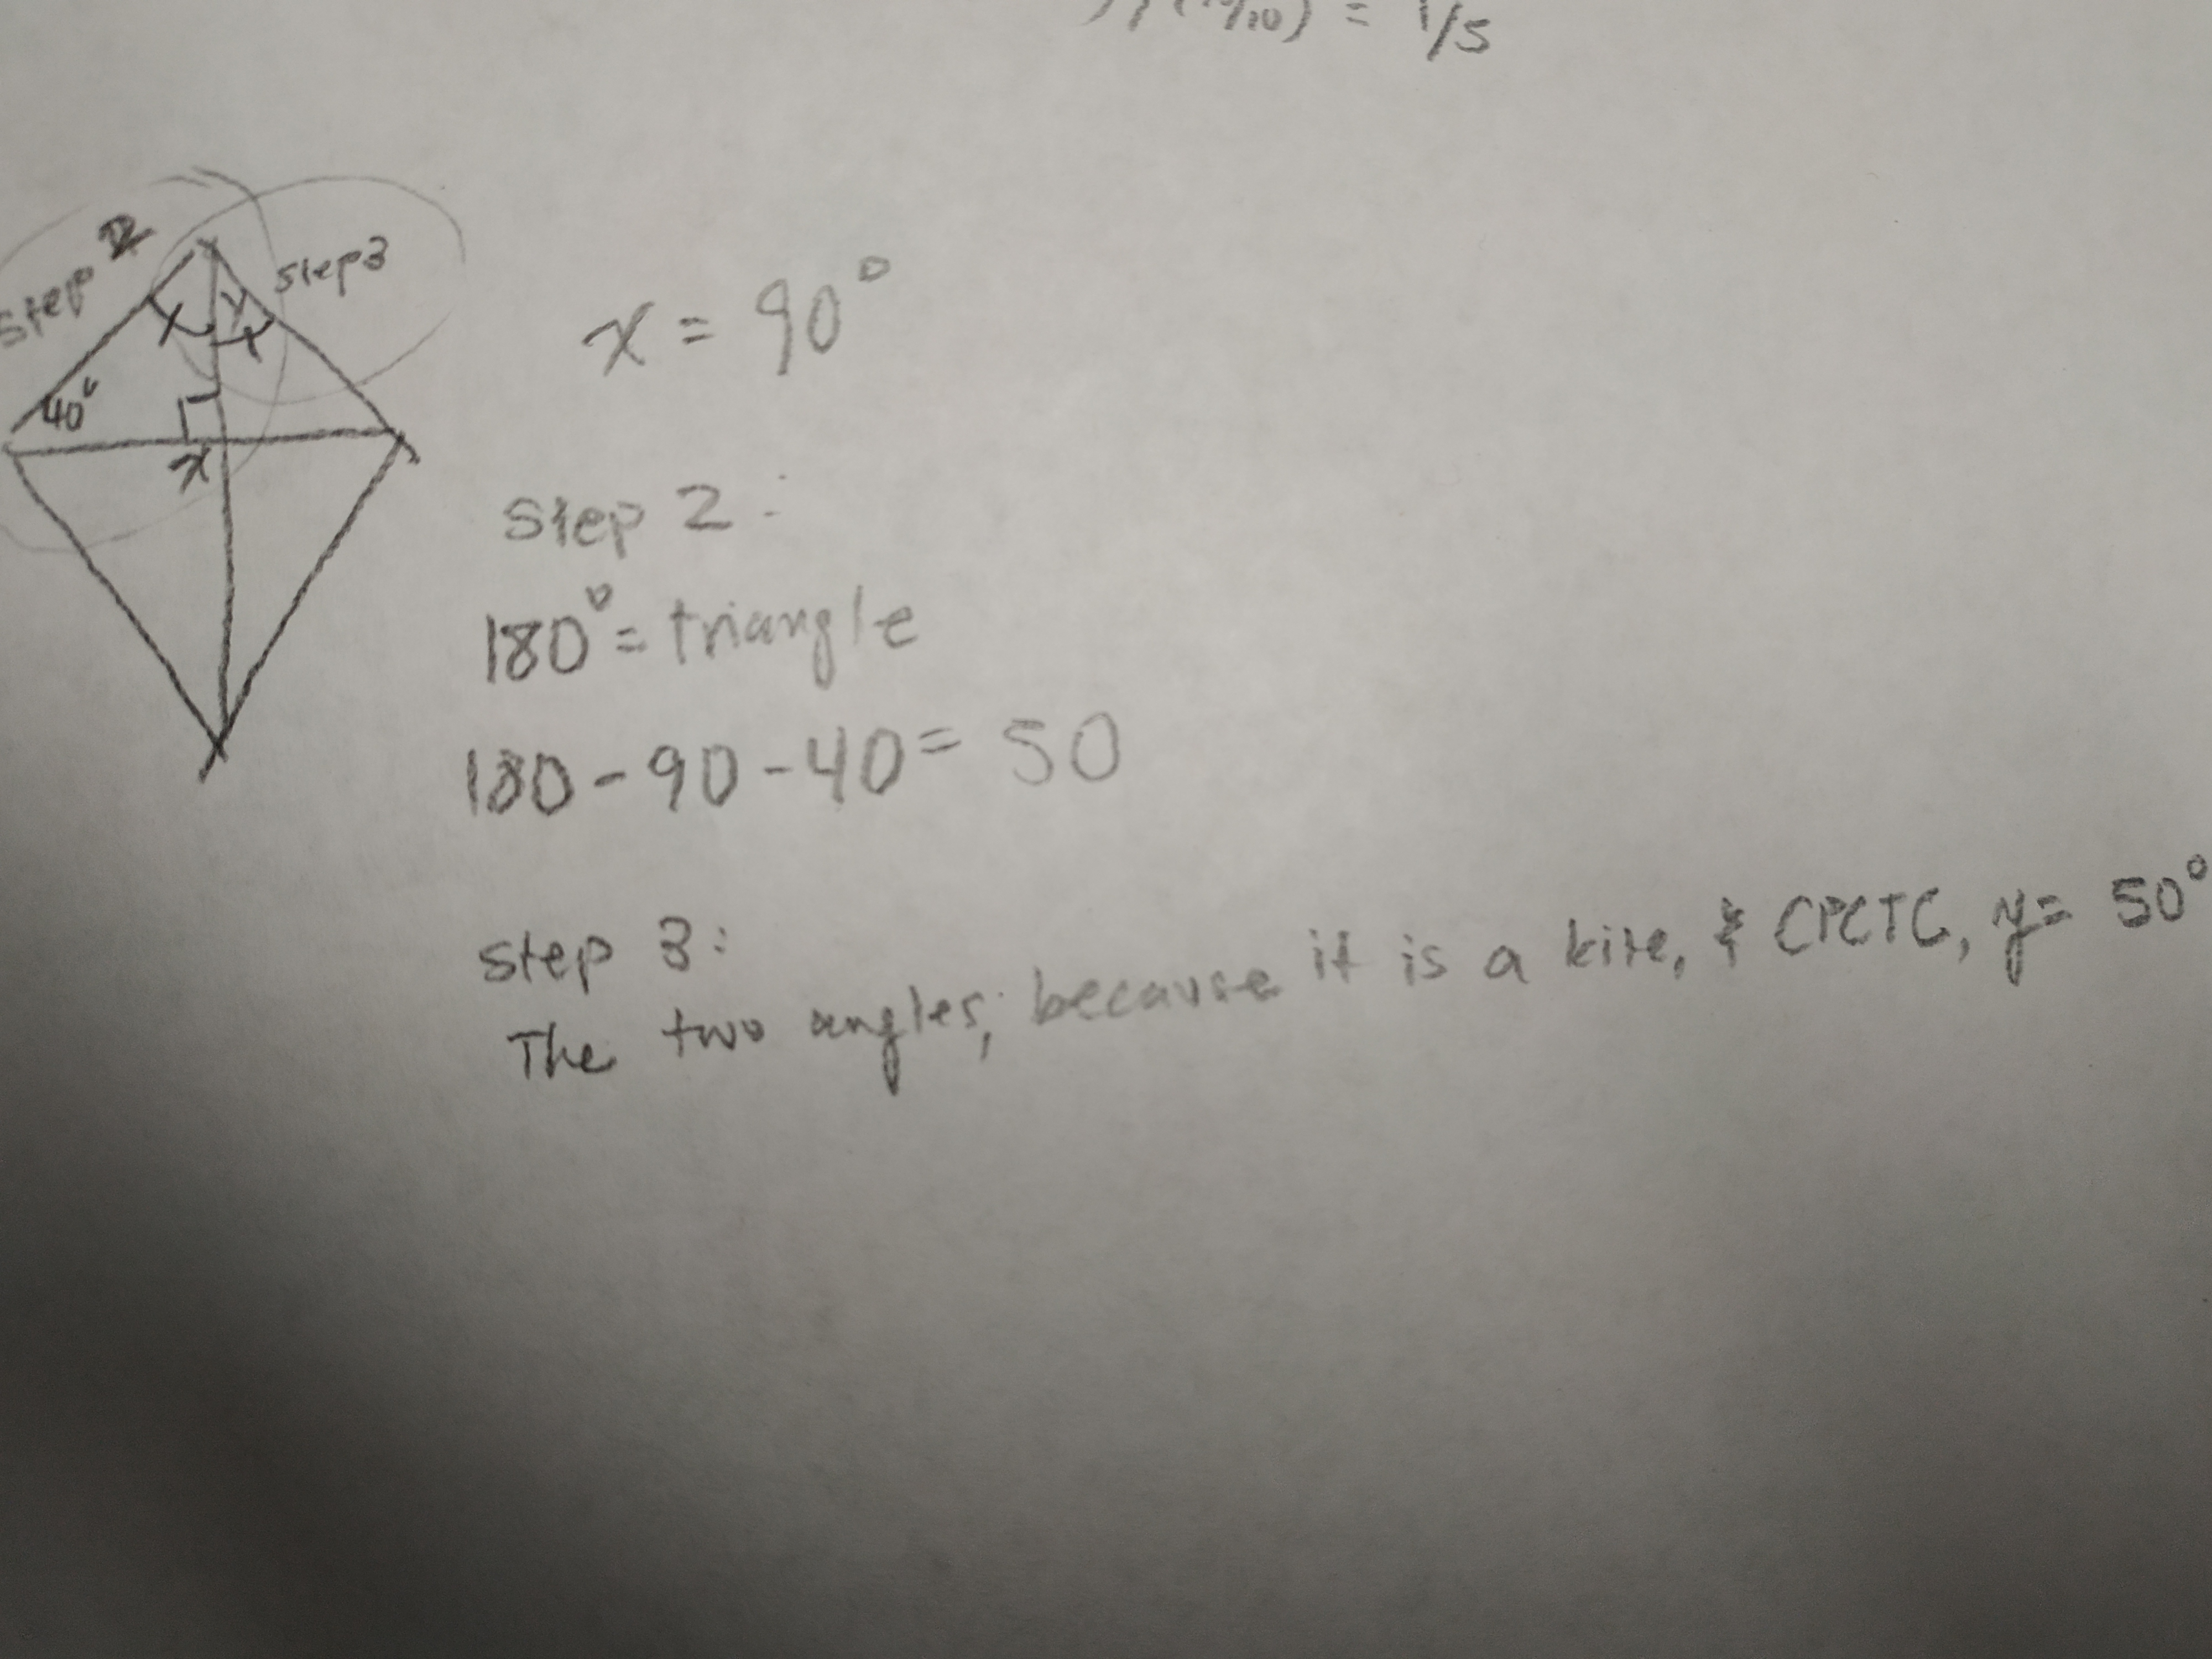 = 1/5
step 2
step 3
y
40°
x
x = 90°
step 2:
180° = triangle
180 - 90 - 40 = 50
step 3:
The two angles, because it is a kite, & CPCTC, y = 50°